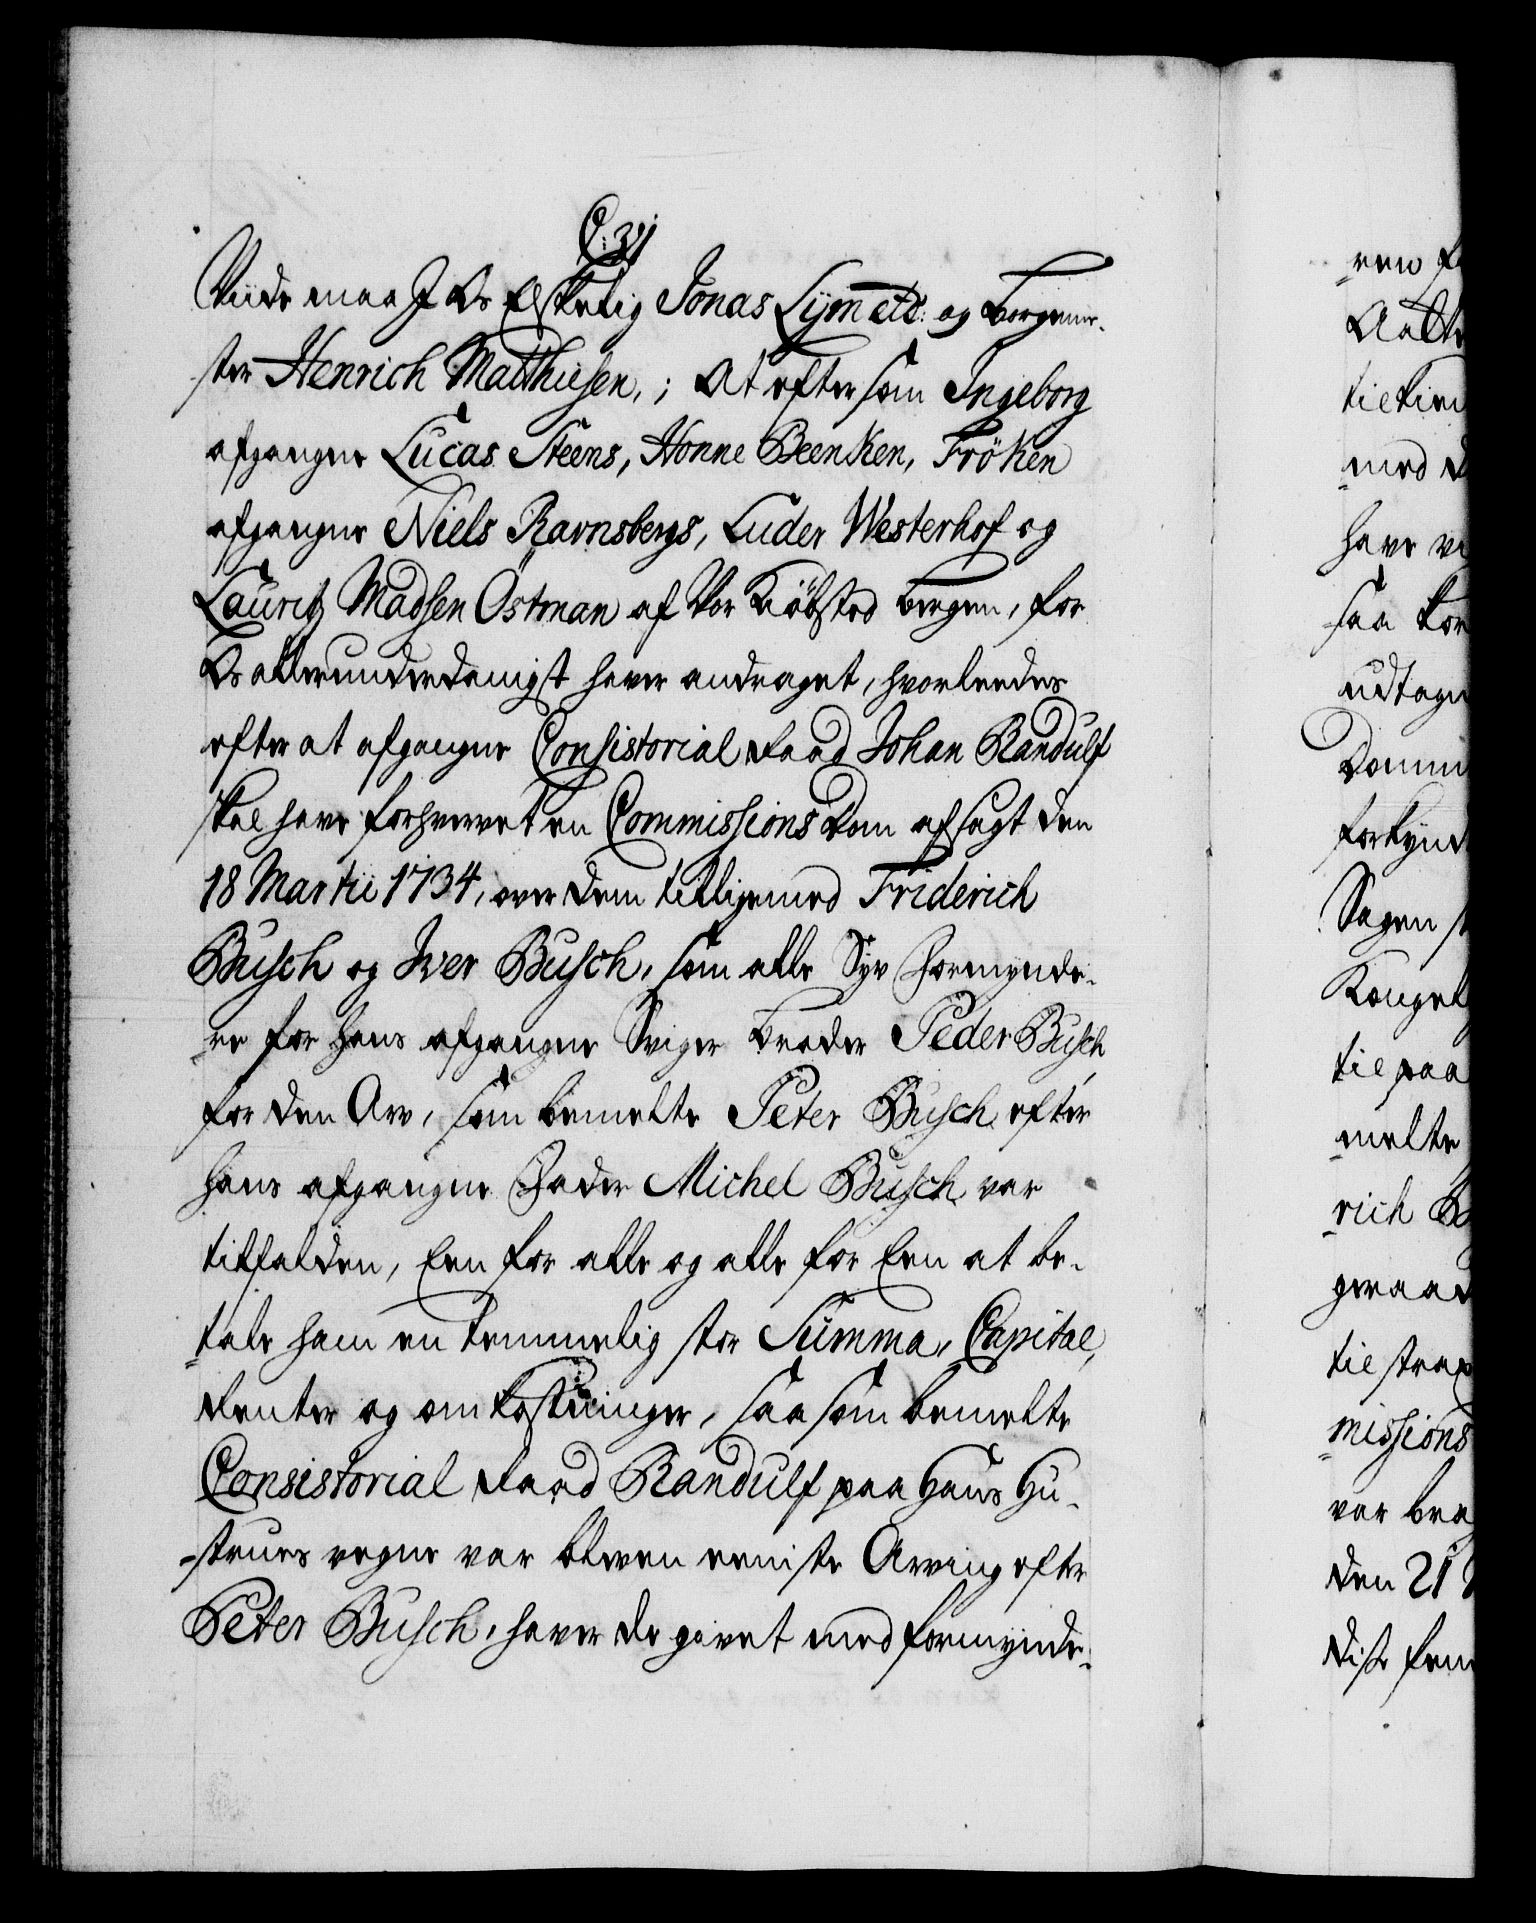 C: 31
Viide maa I Os Elskelig Jonas Lÿm etc: og Borgeme-
ster Henrich Matthiesen,; At eftersom Ingeborg
afgangne Lucas Steens, Honne Beenken, Fröken
afgangne Niels Ravnsbergs, Luder Westerhof og
Lauritz Madsen Östman af Vor Kiöbsted Bergen, for
Os allerunderdanigst haver andraget, hvorleedes
efter at afgangne Consistorial Raad Johan Randulf
skal have forhvervet en Commissions Dom afsagt den
18 Martii 1734, over dem tilligemed Friderich
Busch og Iver Busch, som alle Syv Formynde-
re for hans afgangne Sviger Broder Peder Busch
for den Arv, som bemelte Peter Busch efter
hans afgangne Fader Michel Busch var
tilfalden, Een for alle og alle for Een at be-
tale ham en temmelig stor Summa, Capital,
Renter og omkostninger, saasom bemelte
Consistorial Raad Randulf paa Hans Hu-
strues vegne var bleven eeniste Arving efter
Peter Busch, haver de givet med formynde-
til paa
melte
rich
missions
var
den 21